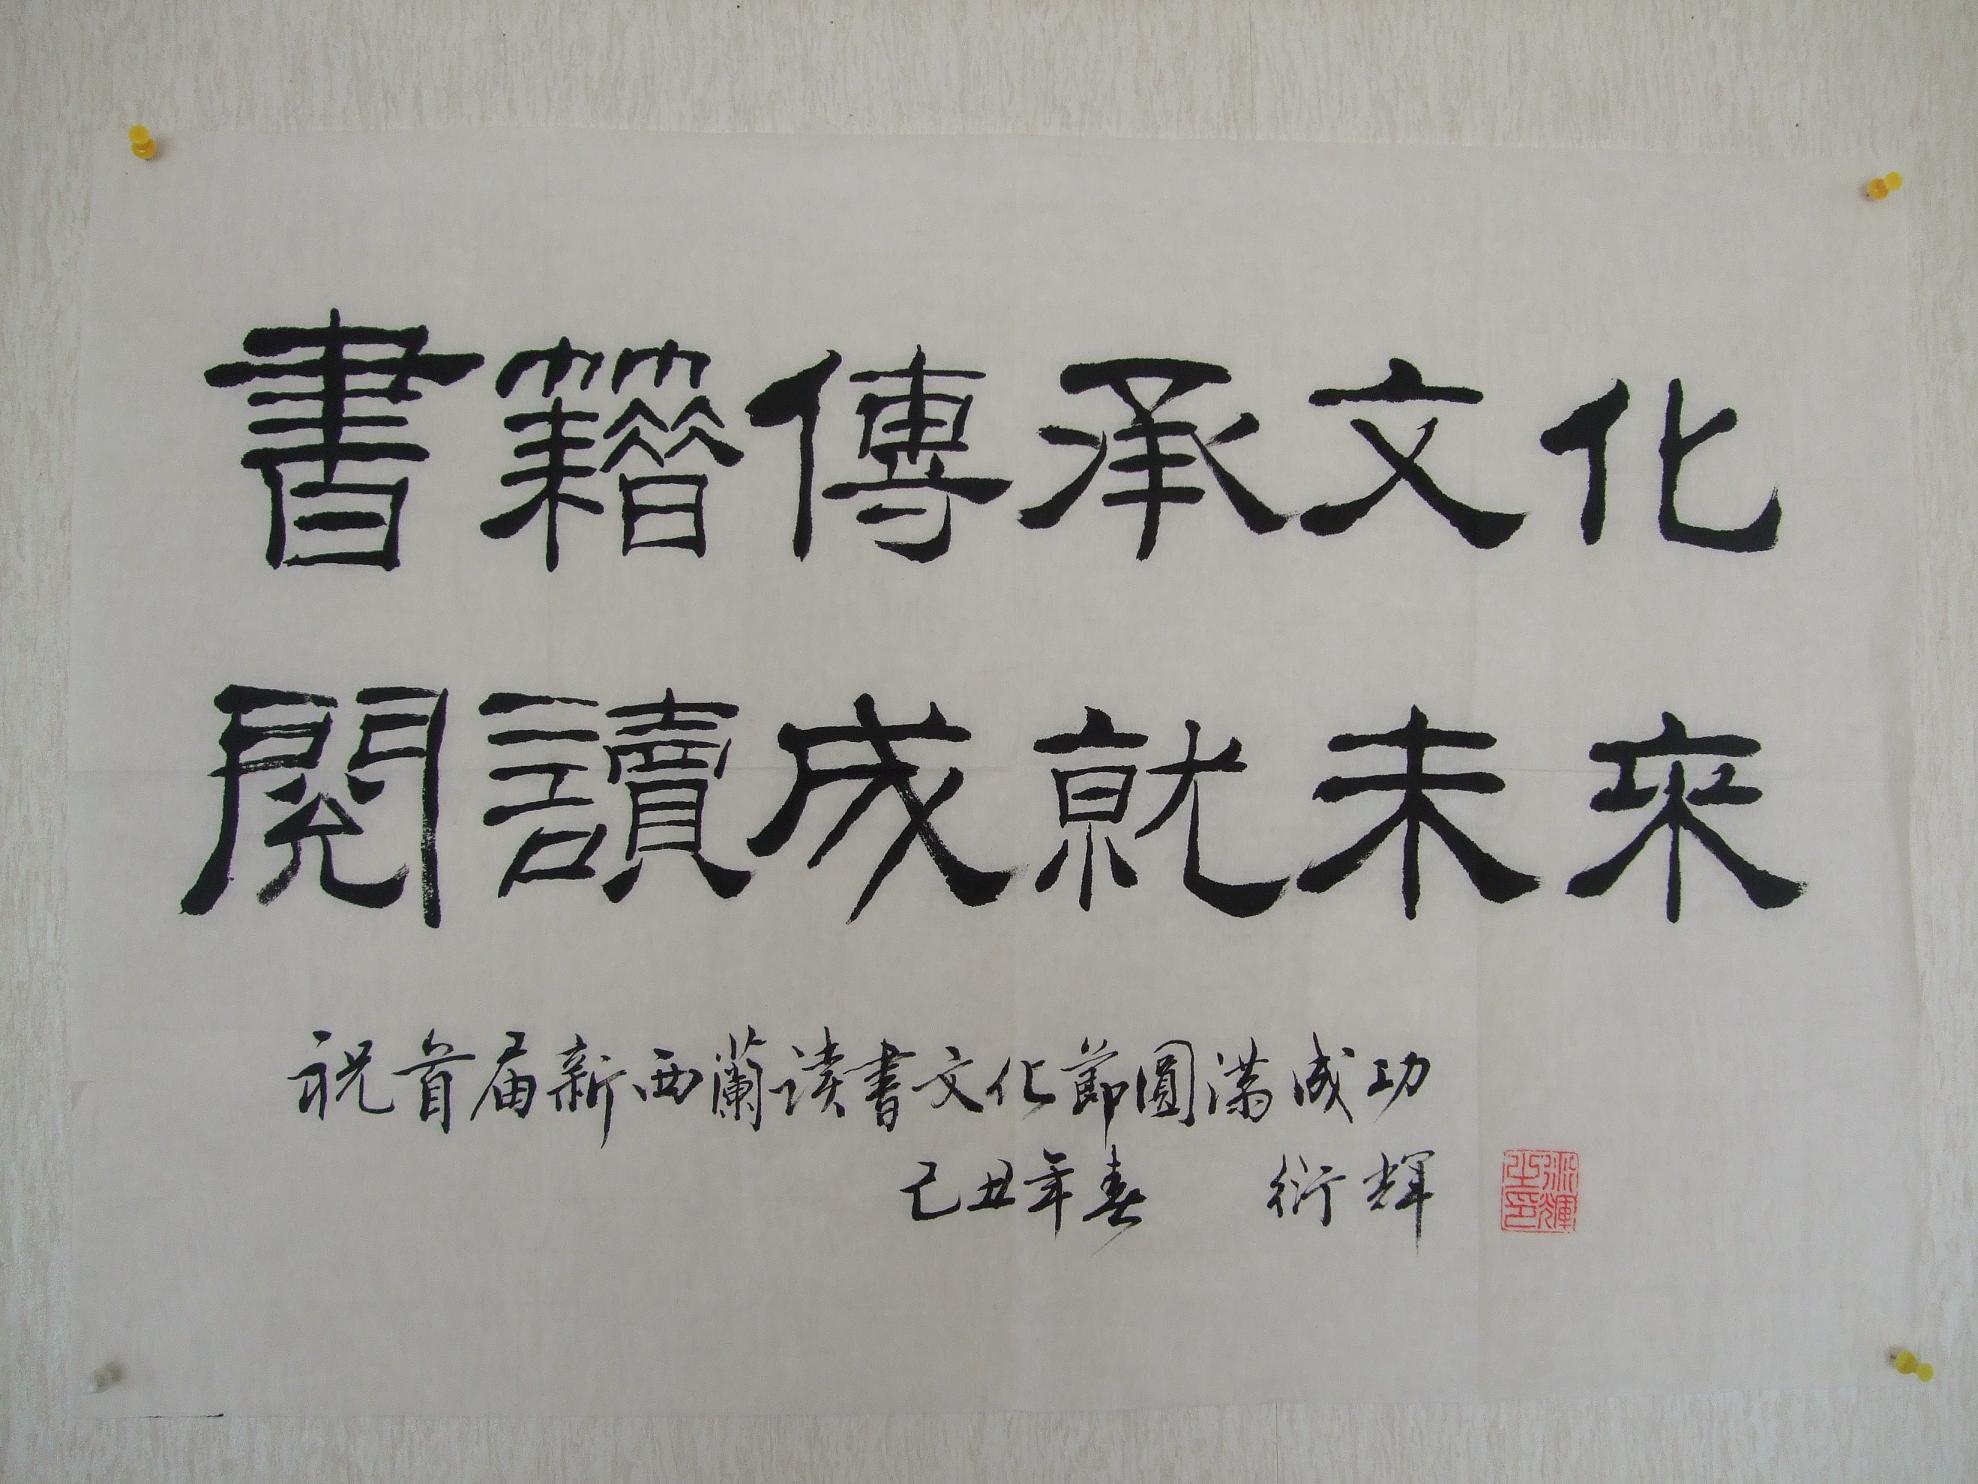 書籍傳承文化
閱讀成就未來
祝首届新西蘭读書文化節圓滿成功
己丑年春 衍輝
衍輝之印